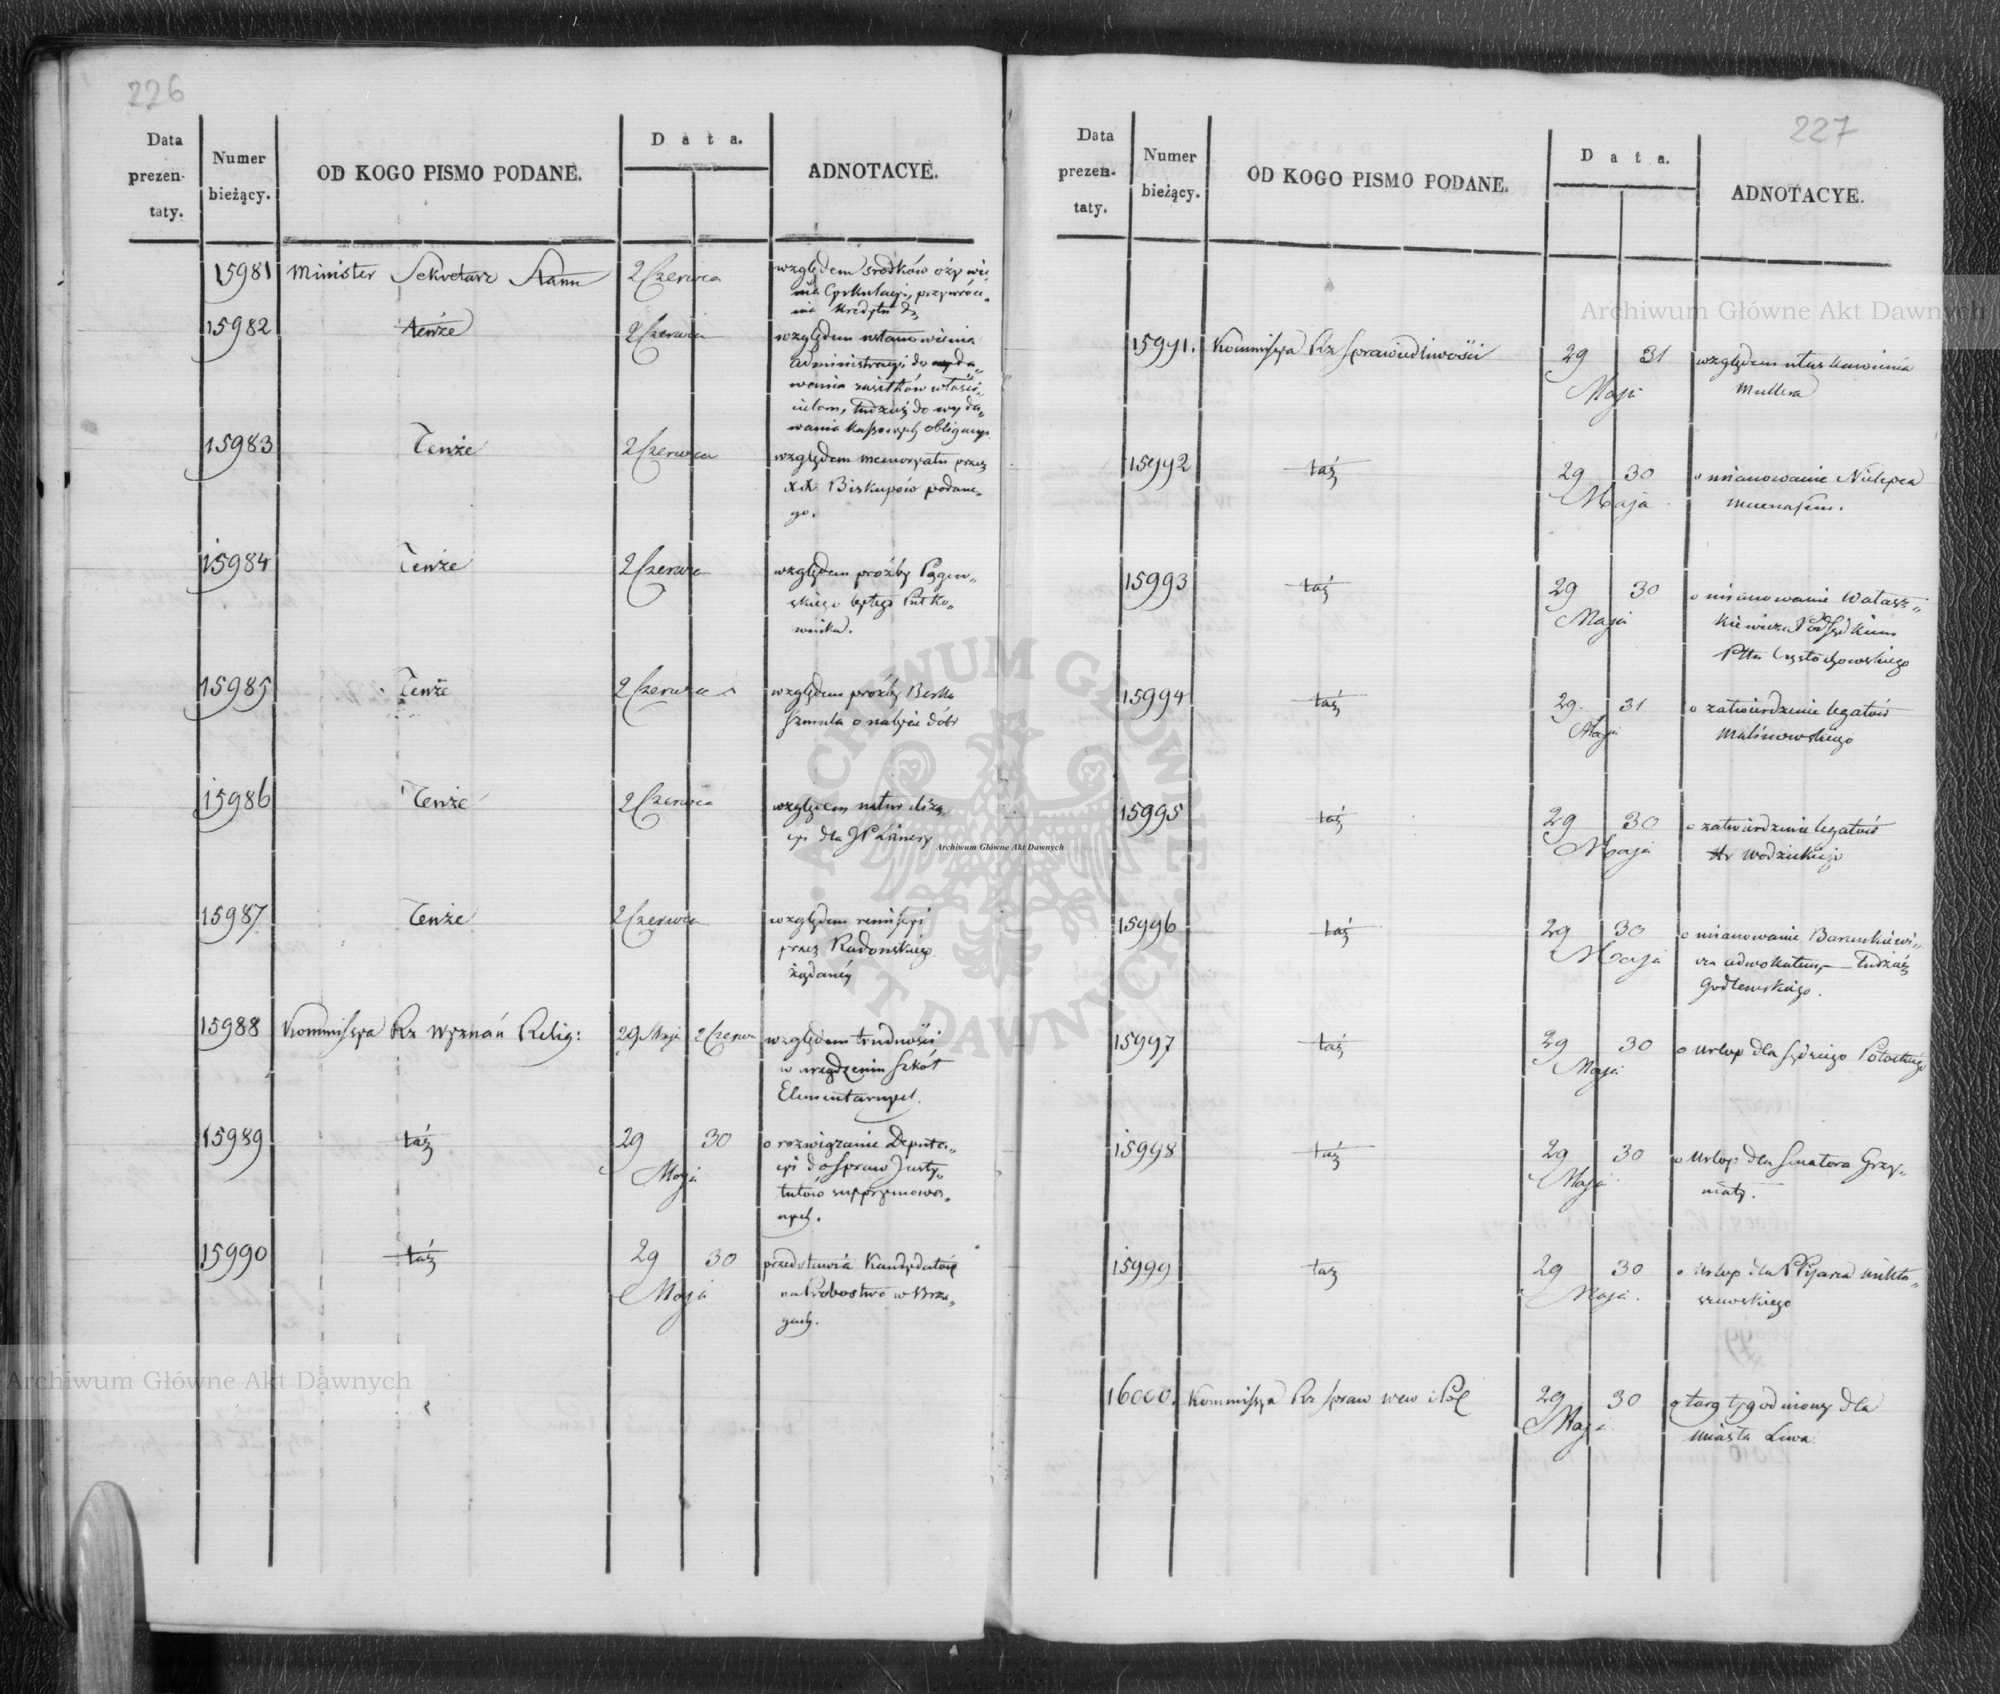 226
Data
prezen-
taty.
Numer
bieżący.
OD KOGO PISMO PODANE.
Data.
ADNOTACYE.
15981 Minister Sekretarz Stanu 2 Czerwca względem środków ożywie
nia Cyrkulacyi, przywróce„
nia Kredytu
15982 tenże 2 Czerwca względem ustanowienia
Administracyi do wyda„
wania zasiłków właści„
cielom, tudzież do wyda„
wania kassowych obligacyi
15983 Tenże 2 Czerwca względem memoryału przez
XX. Biskupów podane„
go.
15984 Tenże 2 Czerwca względem prośby
skiego byłego Pułko„
wnika.
15985 Tenże 2 Czerwca względem prośby Berka
Szmula o nabycie dóbr
15986 Tenże 2 Czerwca względem naturaliza„
cyi dla JP
15987 Tenże 2 Czerwca względem remissyi
przez Radońskiego
żądanéy
15988 Kommissya Rz Wyznań Relig: 29 Maja 2 Czerw względem trudności
w urządzeniu Szkół
Elementarnych.
15989 táż 29 30 Maja o rozwiązanie Deputa„
cyi do Spraw Insty„
tutów suppremowa„
nych.
15990 táż 29 30 Maja przedstawia Kandydatów
na Probostwo w Brze„
gach.
227
Data
prezen-
taty.
Numer
bieżący.
OD KOGO PISMO PODANE.
Data.
ADNOTACYE.
15991. Kommissya Rz Sprawiedliwości 29 31 Maja względem ułaskawienia
Mullera
15992 táż 29 30 Maja o mianowanie Nielepca
mecenasem.
15993 táż 29 30 Maja o mianowanie Watasz„
kiewicza Podsędkiem
Pttu Częstochowskiego
15994 táż 29 31 Maja o zatwierdzenie legatów
Malinowskiego
15995 táż 29 30 Maja o zatwierdzenie legatów
Hr Wodzickiego
15996 táż 29 30 Maja o mianowanie
adwokatem, — tudzież
Godlewskiego.
15997 táż 29 30 Maja o urlop dla sędziego Potockiego
15998 táż 29 30 Maja o urlop dla Senatora Grzy„
mały.
15999 táż 29 30 Maja o urlop dla Pisarza Mikła„
szewskiego
16000. Kommissya Rz spraw wew i Pol 29 30 Maja o targ tygodniowy dla
miasta Liwa.
Archiwum Główne Akt Dawnych
Archiwum Główne Akt Dawnych
Archiwum Główne Akt Dawnych
ARCHIWUM GŁÓWNE AKT DAWNYCH